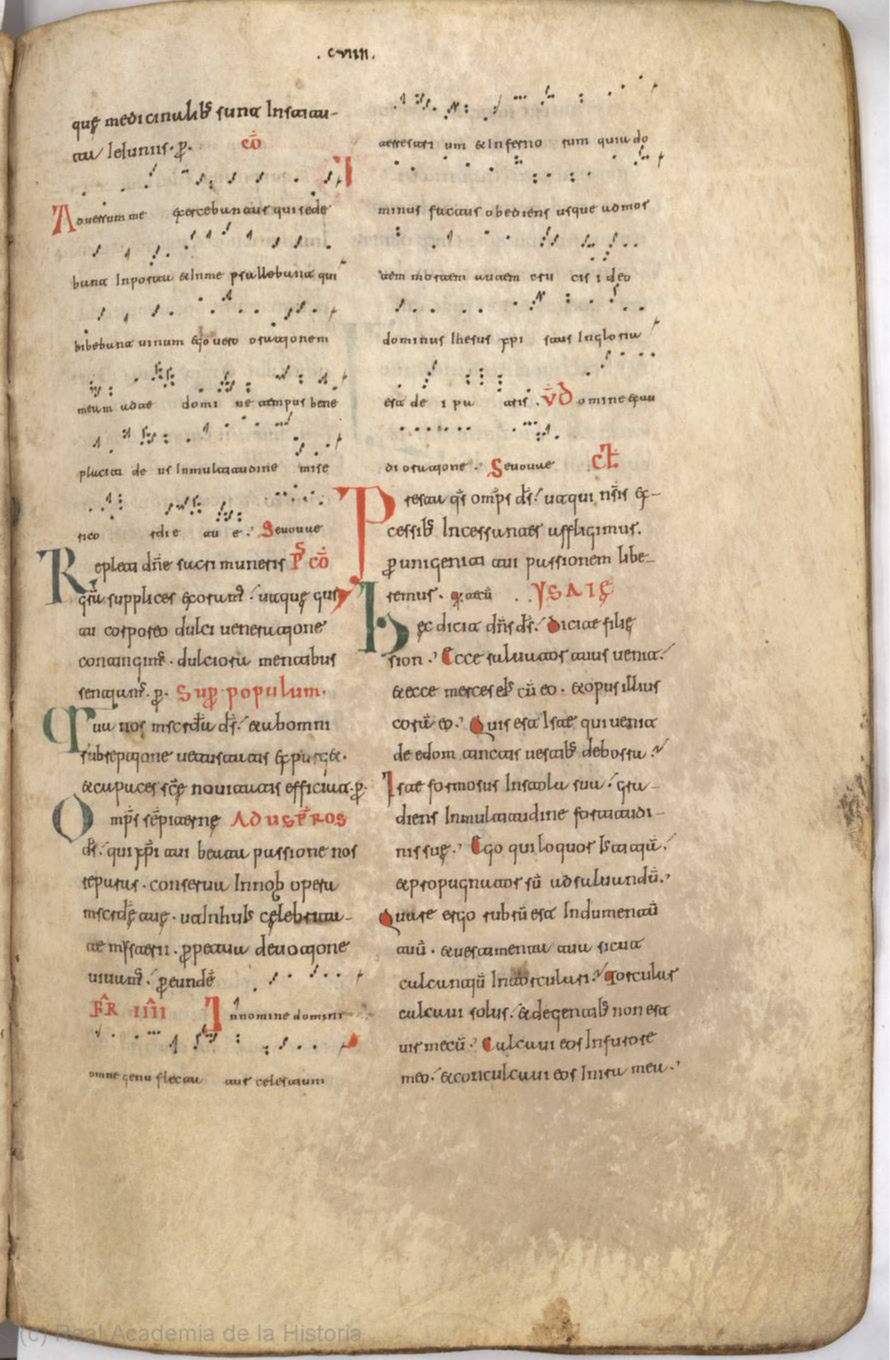 .cviiii.
quę medicinalib̅ sunt Institu-
ta Ieiuniis. p̲. co̅
Aduersum me exercebantur qui sede
bant Inporta & Inme psallebant qui
bibebant uinum ego uero orationem
meam ad te domi ne tempus bene
placiti de us Inmultitudine mise
rico rdie tu e. Seuouae
Repleti dn̅e sacri muneris Ps̅ co̅
gr̅a supplices exoram᷒. ut quę gus
tu corporeo dulci ueneratione
contingim᷒. dulciora mentibus
sentiam᷒. p̲. Sup̲ populum.
Tua nos misc̅dia d̅s. & ab omni
subreptione uetustatis expurget.
& capaces sc̅ę nouitatis efficiat. p̲.
Omp̅s se̅pit̅erne Ad ust̅ros
d̅s. qui xp̅i tui beata passione nos
reparas. conserua Innob̅ opera
misc̅dię tuę. ut Inhuis celebrita-
te misterii. p̲petua deuotione
uiuam᷒. p̲ eunde̅
FR̅ IIII Innomine domini
omne genu flecta tur celestium
terrestri um & Inferno rum quia do
minus factus obediens usque ad mor
tem mortem autem cru cis ideo
dominus Ihesus xpi stus Ingloria
est de i pa tris. V̅ Domine exau
di orationem. Seuouae ct̅
Presta qs̅ omp̅s d̅s. ut qui nr̅is ex-
cessib̅ Incessanter affligimur.
p̲ unigeniti tui passionem libe-
remur. qui tecu̅ .. YSAIĘ
Hęc dicit dn̅s d̅s. Dicite filię
sion. Ecce saluator tuus uenit.
& ecce merces ei᷒ cu̅ eo. & opus illius
cora̅ eo. Quis est Iste qui uenit
de edom tinctis uestib̅ de bosra.
Iste formosus Instola sua. gra-
diens Inmultitudine fortitudi-
nis suę. Ego qui loquor Iusticia̅.
& propugnator su̅ ad saluandu̅.
Quare ergo rubru̅ est Indumentu̅
tuu̅. & uestimenta tua sicut
calcantiu̅ Intorculari. Torcular
calcaui solus. & de gentib̅ non est
uir mecu̅. Calcaui eos Infurore
meo. & conculcaui eos Inira mea.
(c) Real Academia de la Historia